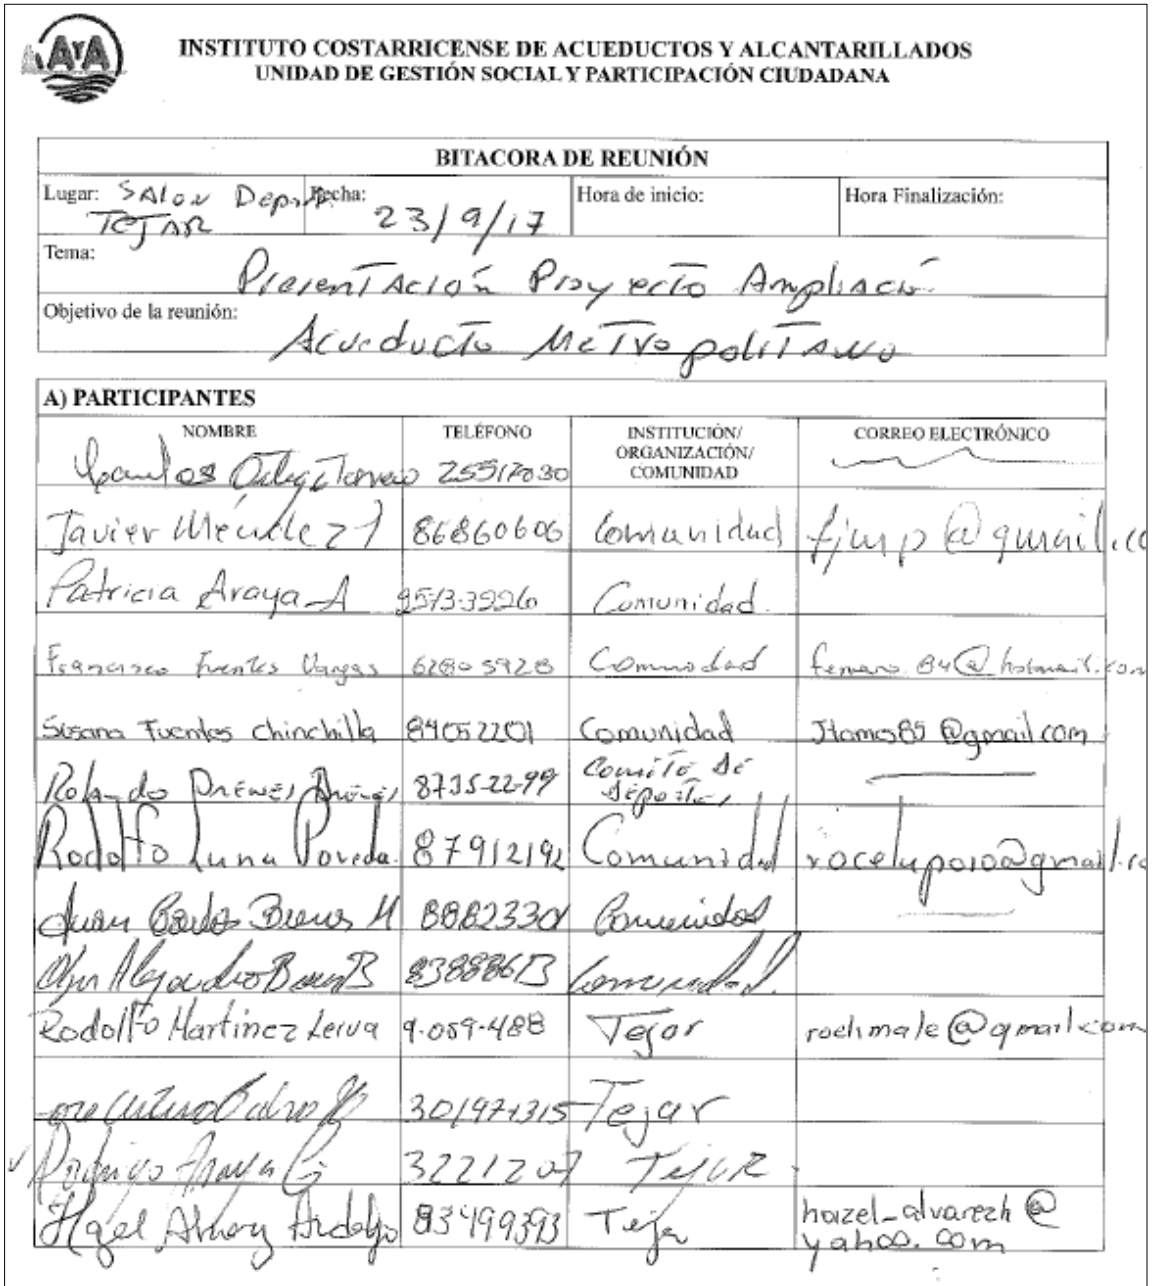 AyA
INSTITUTO COSTARRICENSE DE ACUEDUCTOS Y ALCANTARILLADOS
UNIDAD DE GESTIÓN SOCIAL Y PARTICIPACIÓN CIUDADANA
BITACORA DE REUNIÓN
Lugar: Salon Fecha: Hora de inicio: Hora Finalización:
Tejar 23/9/17
Tema:
Presentación Proyecto Ampliació
Objetivo de la reunión:
Acueducto Metropolitano
A) PARTICIPANTES
NOMBRE TELÉFONO INSTITUCIÓN/ CORREO ELECTRÓNICO
ORGANIZACIÓN/
COMUNIDAD
25517030
Javier Méndez 86860606 Comunidad fjmp@gmail.co
Patricia Araya A 2573-3226 Comunidad
Francisco Fuentes Vargas 62805928 Comunidad @hotmail.com
Susana Fuentes Chinchilla 84052201 Comunidad Jtames85@gmail.com
Rolando 8735-2299 Comité de
deportes
Rodolfo Luna Poveda 87912192 Comunidad rocelupo10@gmail.co
Juan Carlos M Comunidad
Alejandro Comunidad
Rodolfo Martinez Leiva 9-059-488 Tejar @gmail.com
301971315 Tejar
Rodrigo Araya G 3221207 Tejar
83499393 Tejar hazel_alvarezh@
yahoo.com